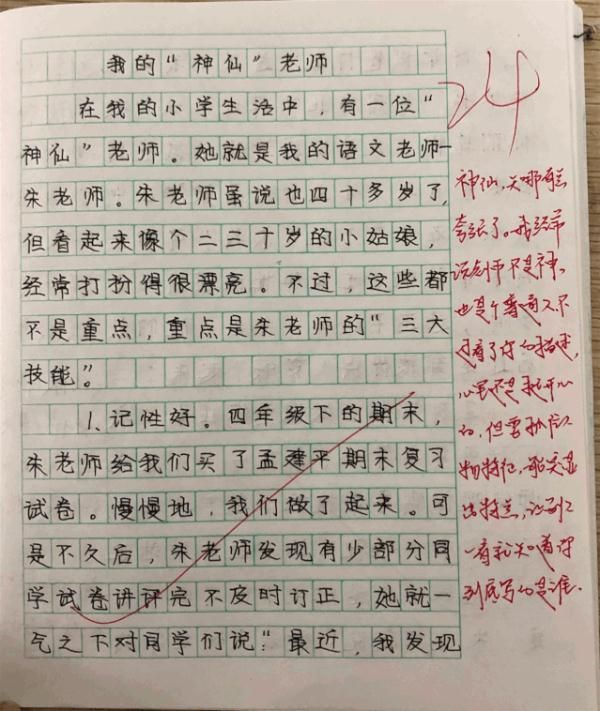 我的“神仙”老师
在我的小学生活中，有一位“
神仙”老师。她就是我的语文老师—
朱老师。朱老师虽说也四十多岁了，
但看起来像个二三十岁的小姑娘，
经常打扮得很漂亮。不过，这些都
不是重点，重点是朱老师的“三大
技能”。
1、记性好。四年级下的期末，
朱老师给我们买了孟建平期末复习
试卷。慢慢地，我们做了起来。可
是不久后，朱老师发现有少部分同
学试卷讲评完不及时订正，她就一
气之下对同学们说：“最近，我发现
24
神仙，
夸张了。我经常
说老师不是神，
也是个普通人。不
过看了你的描述，
心里还是挺开心
的，但要抓住人
物特征，
出特点，让别人
一看就知道你
到底写的是谁。